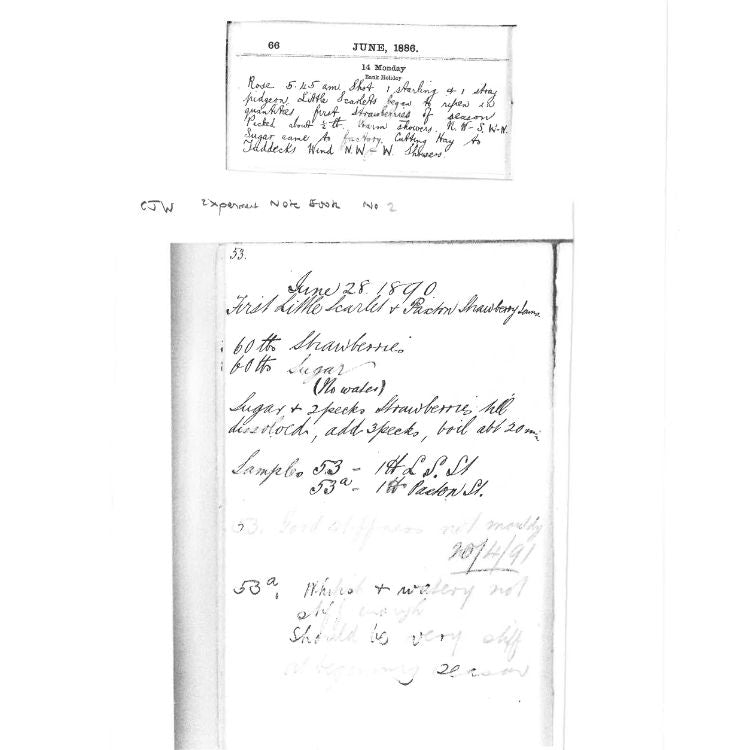 66 JUNE, 1886.
14 Monday
Bank Holiday
Rose 5.45 am Shot 1 starling & 1 stray
pidgeon Little Scarlets began to ripen in
quantities first Strawberries of season
Picked about ½ lb. Warm showers. N.W-S.W-W.
Sugar came to factory. Cutting Hay to
Wind N.W & W. Showers
CJW Experiment Note Book No 2
53.
June 28. 1890.
First Little Scarlet & Paxton Strawberry Jams.
60 lbs Strawberries
60 lbs Sugar
(No water)
Sugar & 2 pecks Strawberries till
dissolved, add 3 pecks, boil abt 20 min
Samples 53 - 1 lb L. S. St
53a - 1 lb Paxton St.
53. Good stiffness not mouldy
20/4/91
53a. Whitish & watery not
stiff enough
Should be very stiff
at beginning season